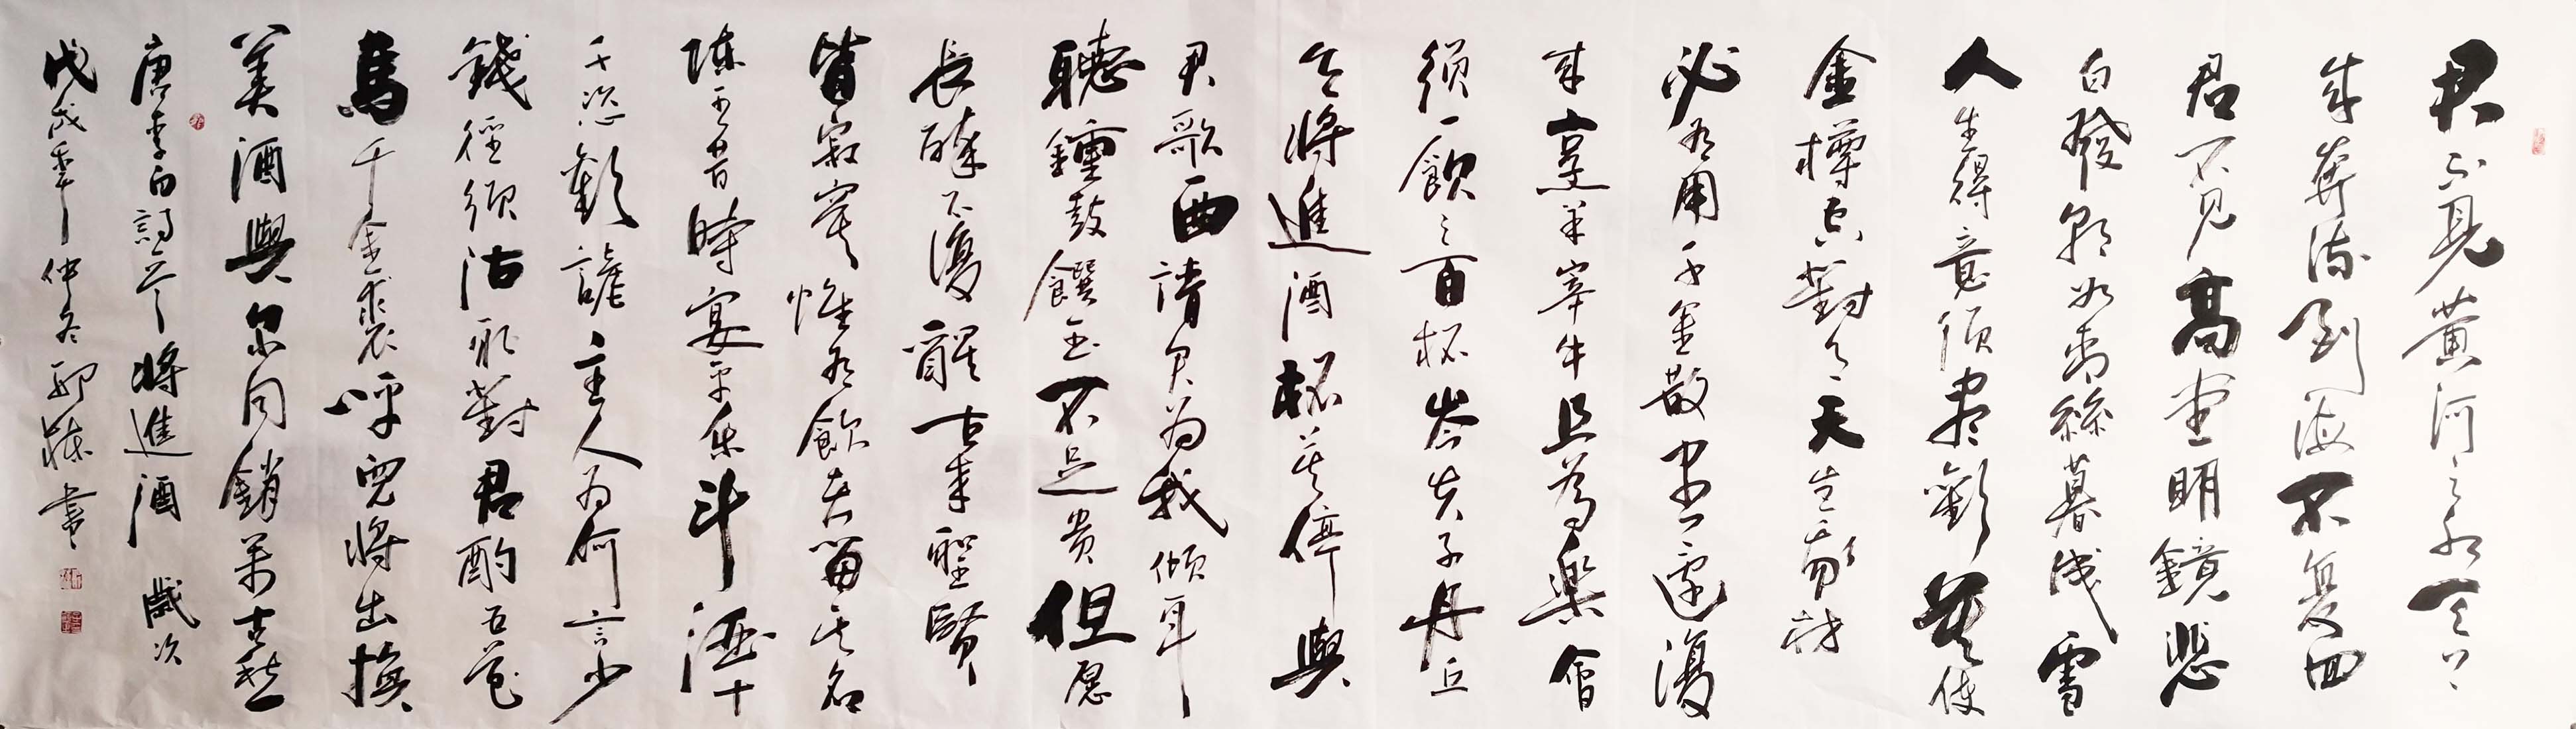 君不見黄河之水天上
来奔流到海不復回
君不见高堂明鏡悲
白發朝如青絲暮成雪
人生得意须盡歡莫使
金樽空對月天生我材
必有用千金散尽還復
来烹羊宰牛且為樂會
须一飲三百杯岑夫子丹丘
生將進酒杯莫停與
君歌一曲請君为我傾耳
聽鐘鼓饌玉不足貴但愿
長醉不復醒古来聖賢
皆寂寞惟有飲者留其名
陳王昔時宴平樂斗酒十
千恣歡謔主人为何言少
錢徑须沽取對君酌五花
馬千金裘呼兒將出換
美酒與尔同銷萬古愁
唐李白詩一首將進酒歲次
戊戌年仲冬書